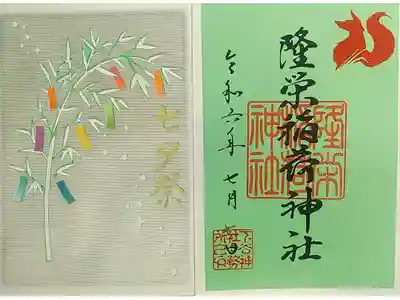 七夕祭
隆栄稲荷神社
令和六年 七月 日
隆栄
稲荷
神社